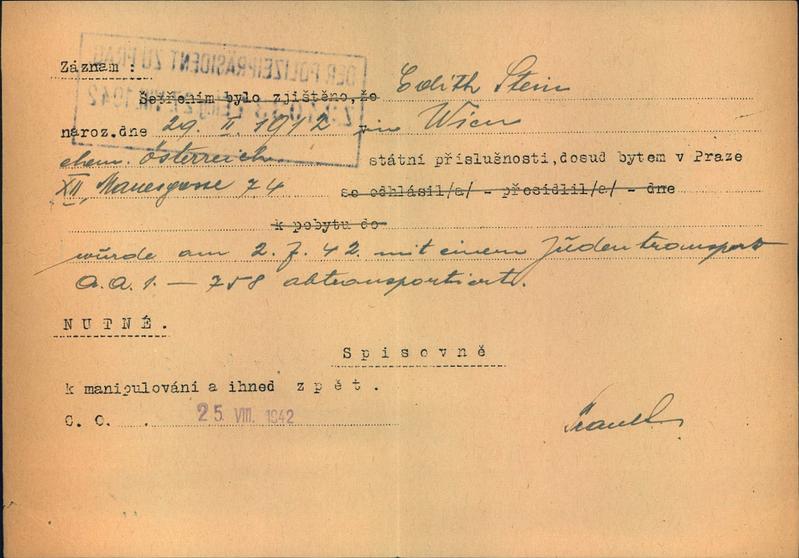 DER POLIZEIPRÄSIDENT ZU PRAG
27. VIII. 1942
Záznam :
Šetřením bylo zjištěno, že Edith Stein
naroz.dne 29. II. 1912 in Wien
ehem. Österreich. státní příslušnosti,dosud bytem v Praze
XII, Manesgasse 74 se odhlásil/a/ - přesídlil/a/ - dne
k pobytu do
wurde am 2. 7. 42. mit einem Judentransport
A.A.1. — 758 abtransportiert.
NUTNÉ.
Spisovně
k manipulování a ihned zpět.
C. O. 25. VIII. 1942